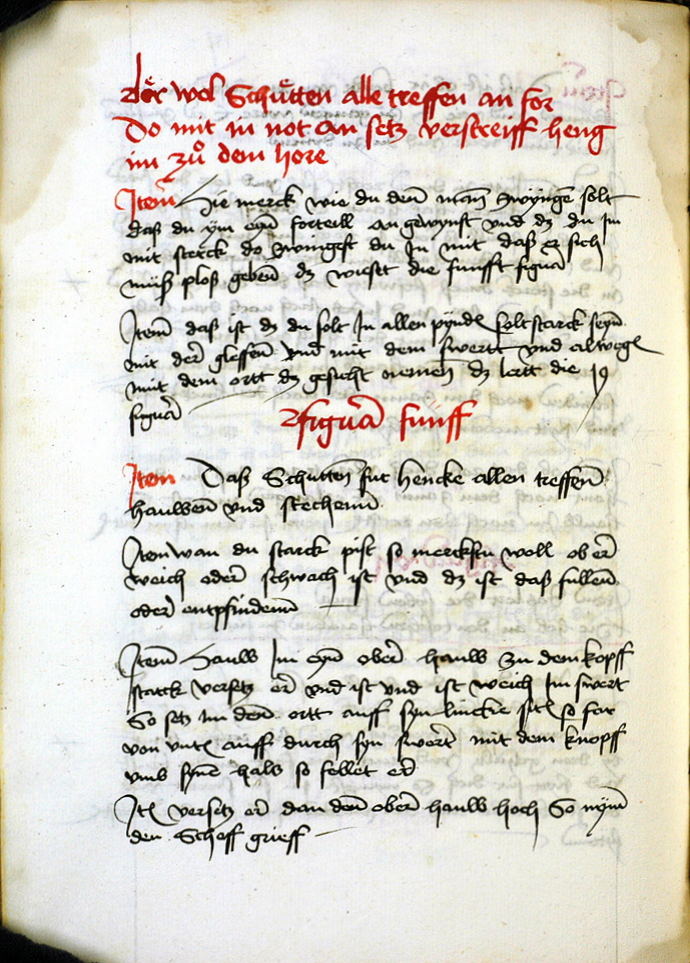 Der wel Schütten alle treffen an for
Do mit in not an setz verstreiff heng
im zů dem hore
Item Hie merck wie du den man zwyngen solt
daß du ym eyn forteill an gewynst vnd dz du Im
mit sterck do zwingest du In mit daß er sich
müß ploß geben dz wiest die funfft figur
Item daß ist dz du solt In allen pynden solt starck seyn
mit der gleffen vnd mit dem swertt vnd alwegen
mit dem ortt dz gesicht nemen dz lertt die
figur
figur fünff
Item Daß Schutten fur hencke allen treffen
hauwen vnd stechenn
Item wan du starck pist so merck woll ob er
weich oder schwach ist vnd dz ist daß fullen
oder entpfindenn
Item Hauw Im eyn ober hauw zu dem kopff
starck versetz er vnd ist vnd ist weich Im swert
So setz im den ortt auff syn lincke syten so far
von vnten auff durch syn swert mit dem knopff
vmb syne hals so fellet er
Item versetz er dan den ober hauw hoch So nym
den Scheff grieff